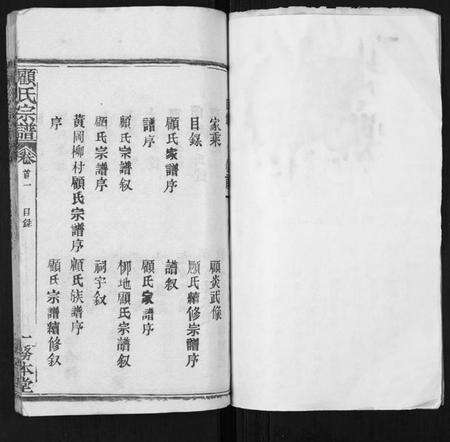 家乘
顧炎武條
目錄
顧氏續修宗譜序
顧氏家譜序
譜叙
譜序
顧氏家譜序
顧氏宗譜叙
柳地顧氏宗譜叙
顧氏宗譜序
祠宇叙
黃岡柳村顧氏宗譜序
顧氏族譜序
序
顧氏宗譜續修叙
顧氏宗譜
卷首一
目錄
本堂